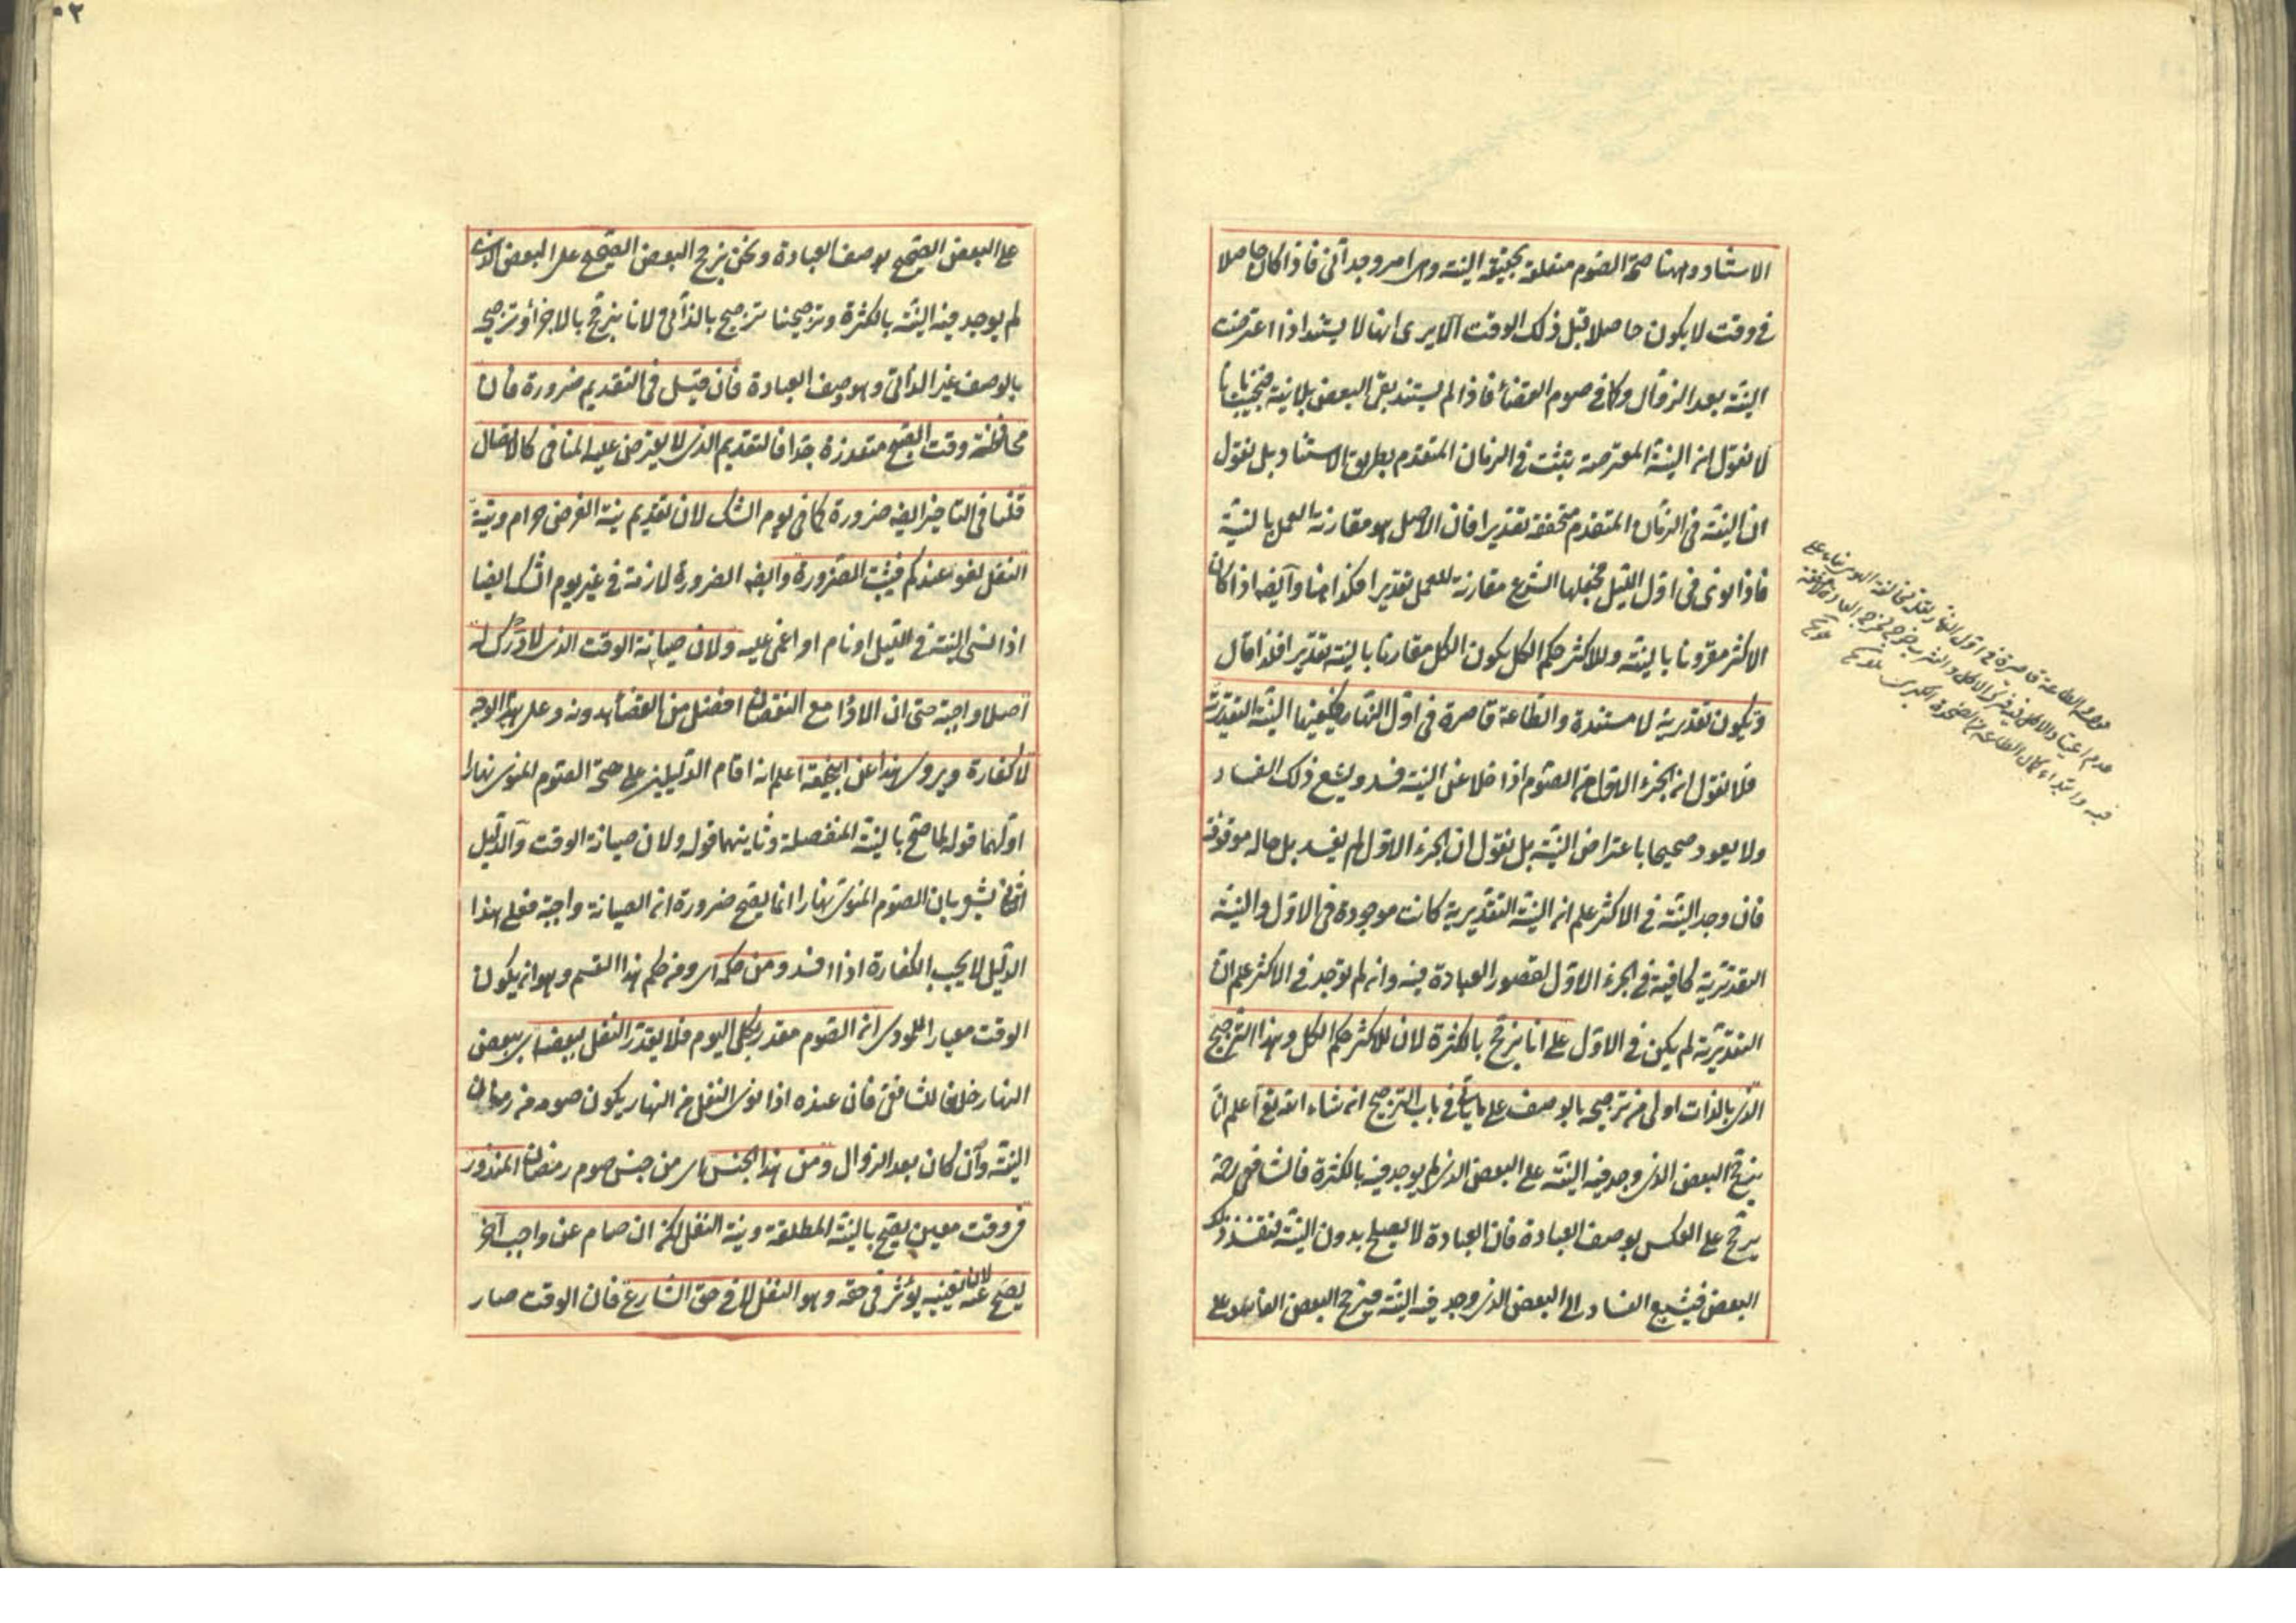 الاستناد وههنا صحة الصوم متعلقة بحقيقة النية وهى امر وجدانى فاذا كان حاصلا
فى وقت لا يكون حاصلا قبل ذلك الوقت الا يرى انها لا يستند اذا اعترضت
النية بعد الزوال وكما فى صوم القضاء فاذا لم يستند بقى البعض بلا نية فنجيب بانا
لا نقول ان النية المعترضة يثبت فى الزمان المتقدم بطريق الاستناد بل نقول
ان النية فى الزمان المتقدم متحققة تقديرا فان الاصل هو مقارنة العمل بالنية
فاذا نوى فى اول الليل فجعلها الشرع مقارنة للعمل تقديرا فكذا هنا وايضا اذا كان
الاكثر مقرونا بالنية وللاكثر حكم الكل يكون الكل مقارنا بالنية تقديرا فلذا قال
ويكون تقديرية لا مستندة والطاعة قاصرة فى اول النهار فيكفيها النية التقديرية
فلا نقول ان الجزء الاول من الصوم اذا خلا عن النية فسد ويشيع ذلك الفساد
ولا يعود صحيحا باعتراض النية بل نقول ان الجزء الاول لم يفسد بل حاله موقوفة
فان وجد النية فى الاكثر علم ان النية التقديرية كانت موجودة فى الاول والنية
التقديرية كافية فى الجزء الاول لقصور العبادة فيه وان لم توجد فى الاكثر علم ان
التقديرية لم يكن فى الاول على انا نرجح بالكثرة لان للاكثر حكم الكل وهذا الترجيح
الذى بالذات اولى من ترجيحه بالوصف على ما يأتى فى باب الترجيح ان شاء الله تعالى اعلم انا
نرجح البعض الذى وجد فيه النية على البعض الذى لم يوجد فيه بالكثرة فالشافعى رحمه
يرجح على العكس بوصف العبادة فان العبادة لا يصلح بدون النية فتفسد ذلك
البعض فيشيع الفساد الى البعض الذى وجد فيه النية فيرجح البعض الفاسد على
على البعض الصحيح بوصف العبادة ونحن نرجح البعض الصحيح على البعض الذى
لم يوجد فيه النية بالكثرة وترجيحنا ترجيح بالذاتى لانا نرجح بالاجزاء وترجيحه
بالوصف غير الذاتى وهو وصف العبادة فان قيل فى التقديم ضرورة فان
محافظة وقت الصبح متعذرة جدا فالتقديم الذى لا يعترض عليه المنافى كالاتصال
قلنا فى التاخير ايضا ضرورة كما فى يوم الشك لان تقديم نية الفرض حرام ونية
النفل لغو عندكم فيثبت الضرورة وايضا الضرورة لازمة فى غير يوم الشك ايضا
اذا نسى النية فى الليل او نام او اغمى عليه ولان صيانة الوقت الذى لا درك له
اصلا واجبة حتى ان الاداء مع النقصان افضل من القضاء بدونه وعلى هذا الوجه
لا كفارة ويروى هذا عن ابى حنيفة اعلم انه اقام الدليلين على صحة الصوم المنوى نهارا
اولهما قوله لما صح بالنية المنفصلة وثانيهما قوله ولان صيانة الوقت والدليل
الثانى يشعر بان الصوم المنوى نهارا انما يصح ضرورة ان الصيانة واجبة فعلى هذا
الدليل لا يجب الكفارة اذا افسد ومن حكمه اى ومن حكم هذا القسم وهو ان يكون
الوقت معيارا للمودى ان الصوم مقدر بكل اليوم فلا يقدر النفل ببعضه اى ببعض
النهار خلافا للشافعى فان عنده اذا نوى النفل من النهار يكون صومه من زمان
النية وان كان بعد الزوال ومن هذا الجنس اى من جنس صوم رمضان المنذور
فى وقت معين يصح بالنية المطلقة ونية النفل لكن ان صام عن واجب آخر
يصح عنه لان تعينه يؤثر فى حقه وهو النفل لا فى حق الشارع فان الوقت صار